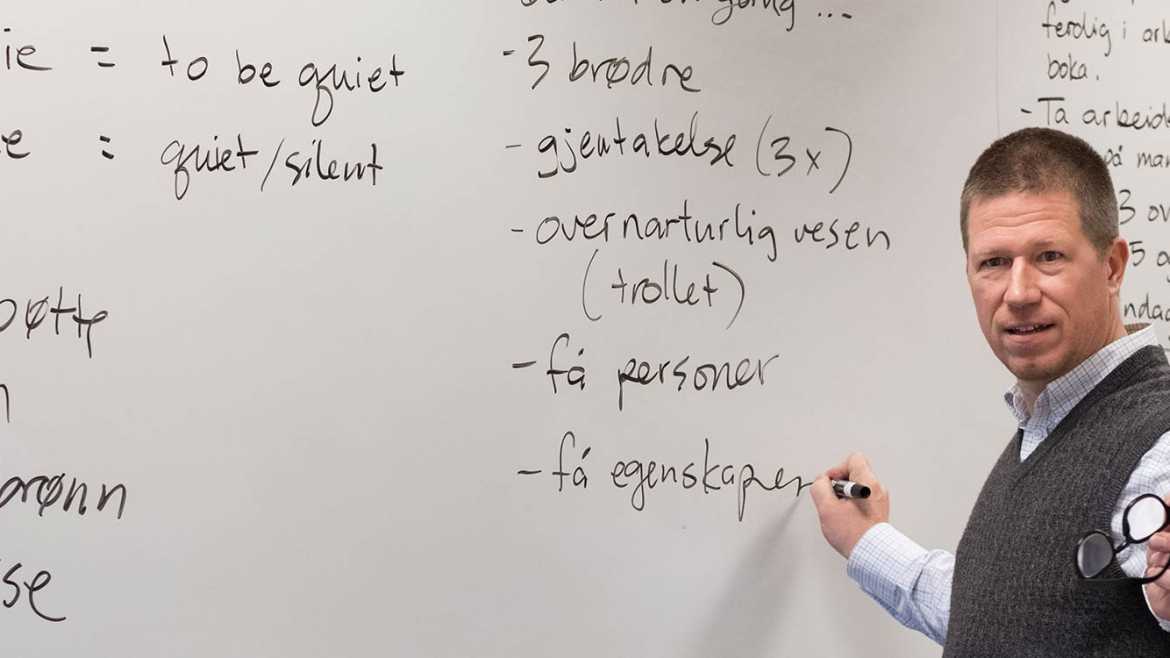 ie = to be quiet
e = quiet/silent
øtte
n
rønn
se
en gang ...
- 3 brødre
- gjentakelse (3x)
- overnarturlig vesen
(trollet)
- få personer
- få egenskaper
ferdig i arb
boka.
- Ta arbeids
på man
3 ov
5 o
ndag